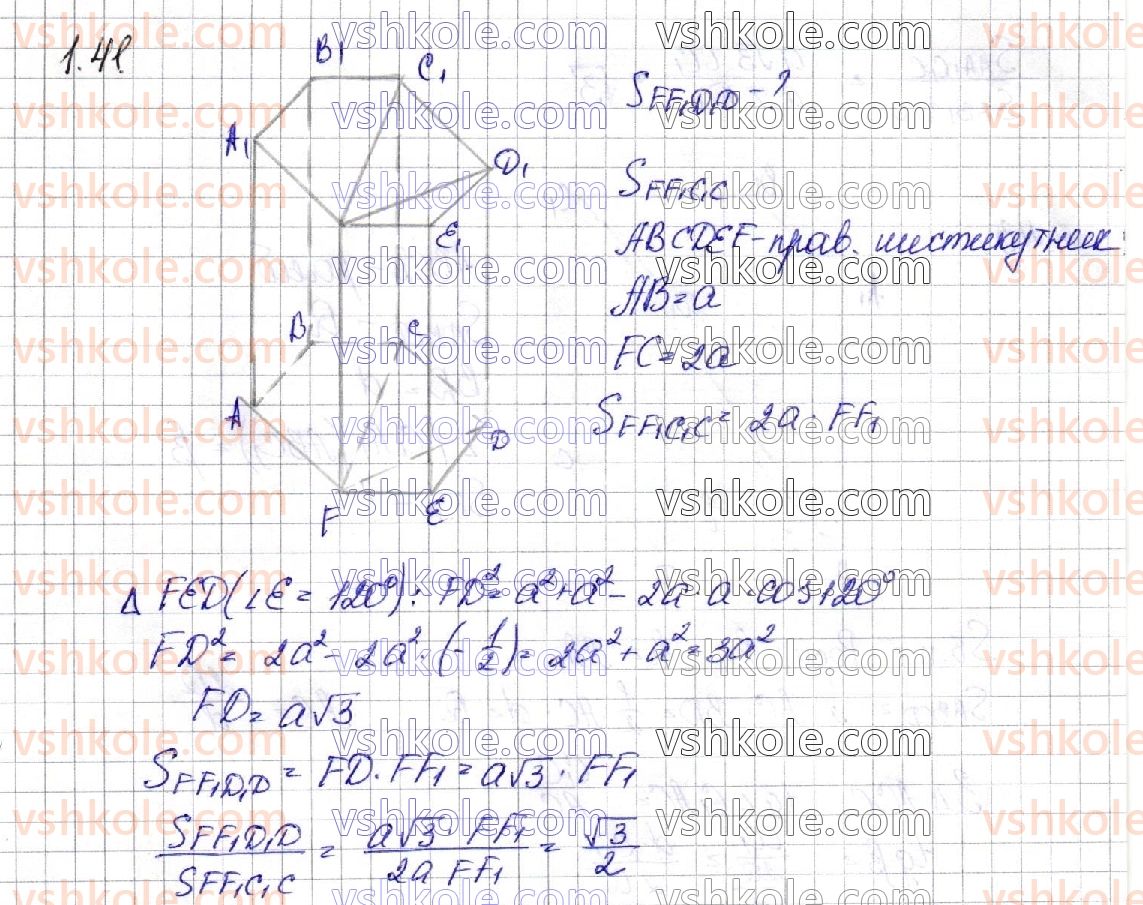 1.41.
B₁ C₁
A₁ D₁
E₁
B C
A D
F E
S_{FF₁D₁D} - ?
S_{FF₁C₁C}
ABCDEF - прав. шестикутник
AB = a
FC = 2a
S_{FF₁C₁C} = 2a · FF₁
Δ FED (∠E = 120°): FD² = a² + a² - 2a · a · cos 120°
FD² = 2a² - 2a² · (-1/2) = 2a² + a² = 3a²
FD = a√3
S_{FF₁D₁D} = FD · FF₁ = a√3 · FF₁
S_{FF₁D₁D} / S_{FF₁C₁C} = a√3 · FF₁ / 2a FF₁ = √3 / 2
vshkole.com